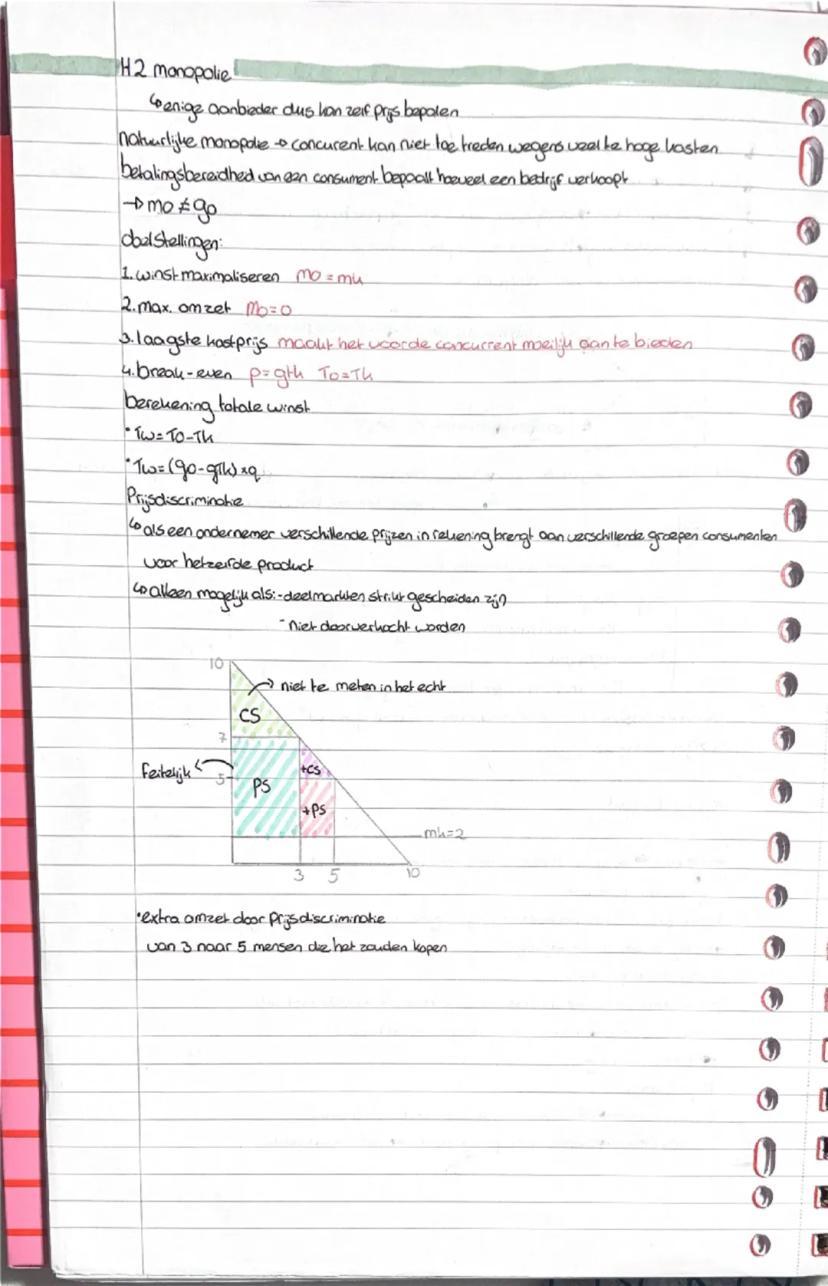 H2 monopolie
↳enige aanbieder dus kan zelf prijs bepalen
natuurlijke monopolie → concurent kan niet toe treden wegens veel te hoge kosten
betalingsbereidheid van een consument bepaalt hoeveel een bedrijf verkoopt
→ mo ≠ go
doelstellingen:
1. winst maximaliseren mo = mk
2. max. omzet mo=0
3. laagste kostprijs maakt het voor de concurrent moeilijk aan te bieden
4. break-even p= gtk To=Tk
berekening totale winst
• Tw= TO-Tk
• Tw= (go-gtk) xq
Prijsdiscriminatie
↳ als een ondernemer verschillende prijzen in rekening brengt aan verschillende groepen consumenten
voor hetzelfde product
↳ alleen mogelijk als: - deelmarkten strikt gescheiden zijn
- niet doorverkocht worden
10
→ niet te meten in het echt
CS
7
feitelijk
+CS
5
PS
+PS
mk=2
3 5 10
• extra omzet door prijsdiscriminatie
van 3 naar 5 mensen die het zouden kopen